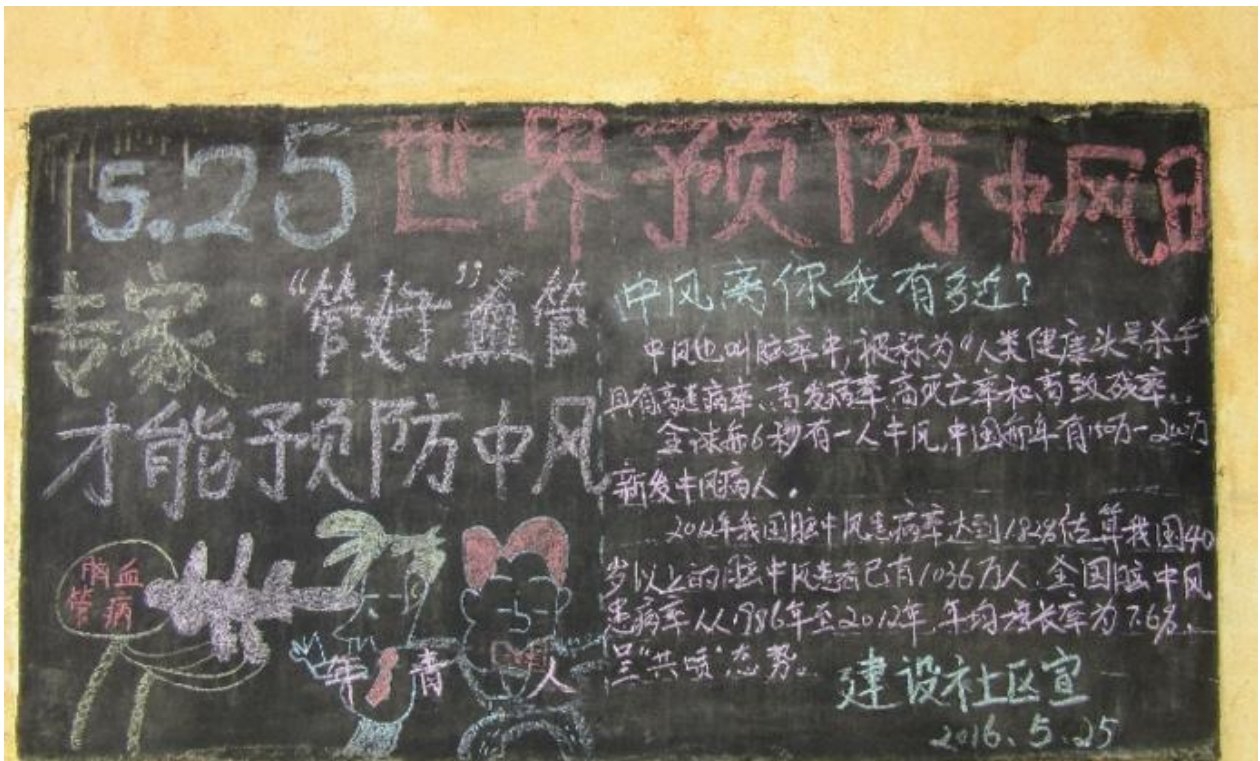 5.25世界预防中风日
专家:“管好”血管
才能预防中风
脑血
管病
年青人
中风离你我有多近?
中风也叫脑卒中,被称为“人类健康头号杀手”
具有高患病率、高发病率、高死亡率和高致残率。
全球每6秒有一人中风,中国每年有150万-200万
新发中风病人。
2012年我国脑中风患病率达到1.82%估算我国40
岁以上的脑中风患者已有1036万人.全国脑中风
患病率从1986年至2012年,年均增长率为7.6%.
呈“井喷”态势。
建设社区宣
2016.5.25